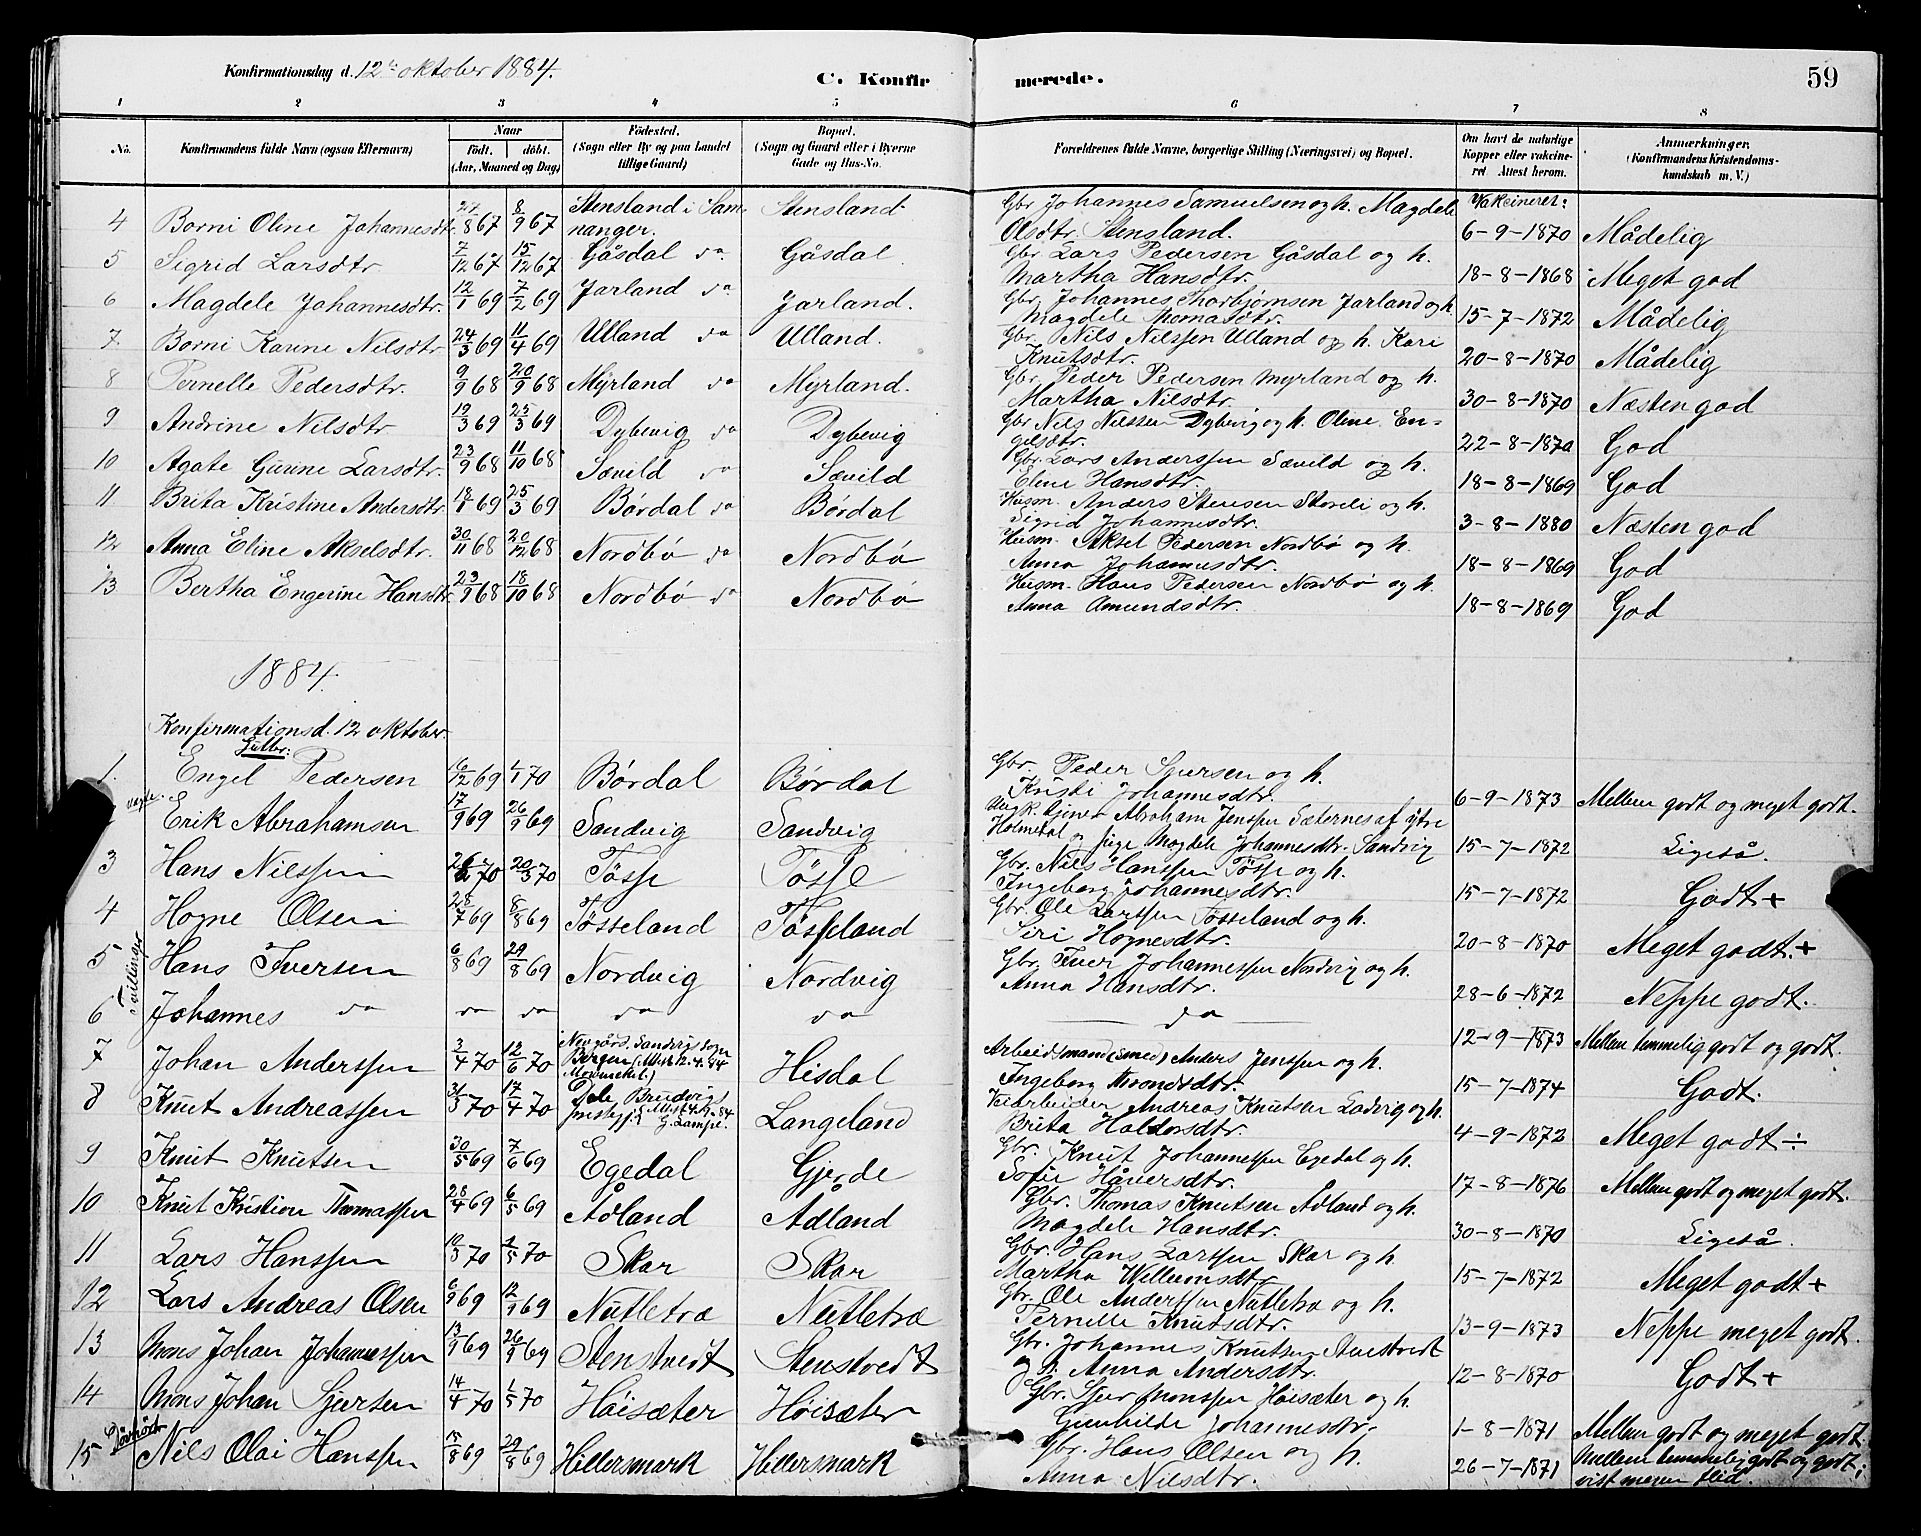 Konfirmationsdag d. 12te oktober 1884.
C. Konfirmerede.
59
1 2 3 4 5 6 7 8
No. Konfirmandens fulde Navn (ogsaa Efternavn) Naar Födt. döbt. (Aar, Maaned og Dag) Födested. (Sogn eller By og paa Landet tillige Gaard) Bopæl. (Sogn og Gaard eller i Byerne Gade og Hus-No. Forældrenes fulde Navne, borgerlige Stilling (Næringsvei) og Bopæl. Om havt de naturlige Kopper eller vakcineret Attest herom. Anmærkninger. (Konfirmandens Kristendomskundskab m. V.)
4 Borni Oline Johannesdtr. 24/8 67 8/9 67 Stensland i Samnanger. Stensland. Gbr Johannes Samuelsen og h. Magdele Olsdtr. Stensland. Vakcineret: 6-9-1870 Mådelig
5 Sigrid Larsdtr. 7/12 67 15/12 67 Gåsdal do Gåsdal. Gbr Lars Pedersen Gåsdal og h. Martha Hansdtr. 18-8-1868 Meget god
6 Magdele Johannesdtr. 12/1 69 7/2 69 Jarland do Jarland. Gbr. Johannes Thorbjørnsen Jarland og h. Magdele Thomasdtr. 15-7-1872 Mådelig
7. Borni Karine Nilsdtr 24/3 69 11/4 69 Ulland do Ulland. Gbr. Nils Nilssen Ulland og h. Kari Knutsdtr. 20-8-1870 Mådelig
8 Pernelle Pedersdtr. 9/9 68 20/9 68 Myrland do Myrland. Gbr. Peder Pedersen Myrland og h. Martha Nilsdtr. 30-8-1870 Næsten god
9 Andrine Nilsdtr 12/3 69 25/3 69 Dybevig do Dybevig Gbr Nils Nilssen Dybevig og h. Oline Engelsdtr. 22-8-1870 God
10 Agate Gurine Larsdtr. 23/9 68 11/10 68 Sævild do Sævild Gbr. Lars Anderssen Sævild og h. Eline Hansdtr. 18-8-1869 God
11 Brita Kristine Andersdtr. 18/1 69 25/3 69 Børdal do Børdal Husm. Anders Stensen Storeli og h. Sigrid Johannesdtr. 3-8-1880 Næsten god
12 Anna Eline Akselsdtr. 30/11 68 20/12 68 Nordbø do Nordbø Husm. Aksel Pedersen Nordbø og h. Anna Johannesdtr. 18-8-1869 God
13 Bertha Engerine Hansdtr. 23/9 68 18/10 68 Nordbø do Nordbø Husm. Hans Pedersen Nordbø og h. Anna Amundsdtr. 18-8-1869 God
1884.
Konfirmationsd. 12 oktober.
Gutter:
1. Engel Pedersen 16/12 69 1/1 70 Børdal Børdal Gbr. Peder Sjursen og h. Kristi Johannesdtr. 6-9-1873 Mellem godt og meget godt.
Erik Abrahamsen 17/9 69 26/9 69 Sandvig Sandvig Abraham Jenssen Sæternes af ytre Holmedal og pige Magdele Johannesdtr. Sandvig 15-7-1872 Ligeså.
3 Hans Nilssen 26/2 70 20/3 70 Tøsse Tøsse Gbr. Nils Hanssen Tøsse og h. Ingeborg Johannesdtr. 15-7-1872 Godt +
4 Hogne Olsen 28/7 69 8/8 69 Tøsseland Tøsseland Gbr. Ole Larssen Tøsseland og h. Siri Hognesdtr. 20-8-1870 Meget godt. +
Tvillinger
5 Hans Iversen 6/8 69 29/8 69 Nordvig Nordvig Gbr. Iver Johannessen Nordvig og h. Anna Hansdtr. 28-6-1872 Neppe godt.
6 Johannes do do do do do do 12-9-1873 Mellem temmelig godt og godt.
7 Johan Anderssen 3/4 70 12/6 70 Nevgård. Sandvigs sogn Bergen (Attest 12.4.84 Hisdal Arbeidsmand (Smed) Anders Jenssen og h. Ingeborg Arondsdtr. 15-7-1874 Godt.
8 Knut Andreassen 31/3 70 17/4 70 Dale Bruvigs prstegj. G. Lampe. Langeland Andreas Knutsen Ladvig og h. Brita Haldorsdtr. 4-9-1872 Meget godt ÷
9 Knut Knutsen 30/5 69 7/6 69 Egedal Gjerde Gbr. Knut Johannessen Egedal og h. Sofie Håversdtr. 17-8-1876 Mellem godt og meget godt.
10 Knut Kristian Thomassen 28/4 69 6/5 69 Ådland Ådland Gbr. Thomas Knutsen Ådland og h. Magdele Hansdtr. 30-8-1870 Ligeså.
11 Lars Hanssen 10/3 70 1/5 70 Skar Skar Gbr. Hans Larssen Skar og h Martha Willumsdtr. 15-7-1872 Meget godt +
12 Lars Andreas Olsen 6/9 69 12/9 69 Nutletræ Nutletræ Gbr. Ole Anderssen Nutletræ og h. Pernille Knutsdtr. 13-9-1873 Neppe meget godt.
13 Mons Johan Johannessen 13/9 69 26/9 69 Stenstvedt Stenstvedt Gbr. Johannes Knutsen Stenstvedt og h. Anna Andersdtr. 12-8-1870 Godt +
14 Mons Johan Sjursen 14/4 70 1/5 70 Høisæter Høisæter Gbr. Sjur Monssen Høisæter og h. Gunhilde Johannesdtr. 1-8-1871 Mellem godt og meget godt.
Døvhørt
15 Nils Olai Hanssen 15/8 69 29/8 69 Hillersmark Hillersmark Gbr. Hans Olsen og h. Anna Nilsdtr. 26-7-1871 Mellem temmelig godt og godt; vist megen flid.